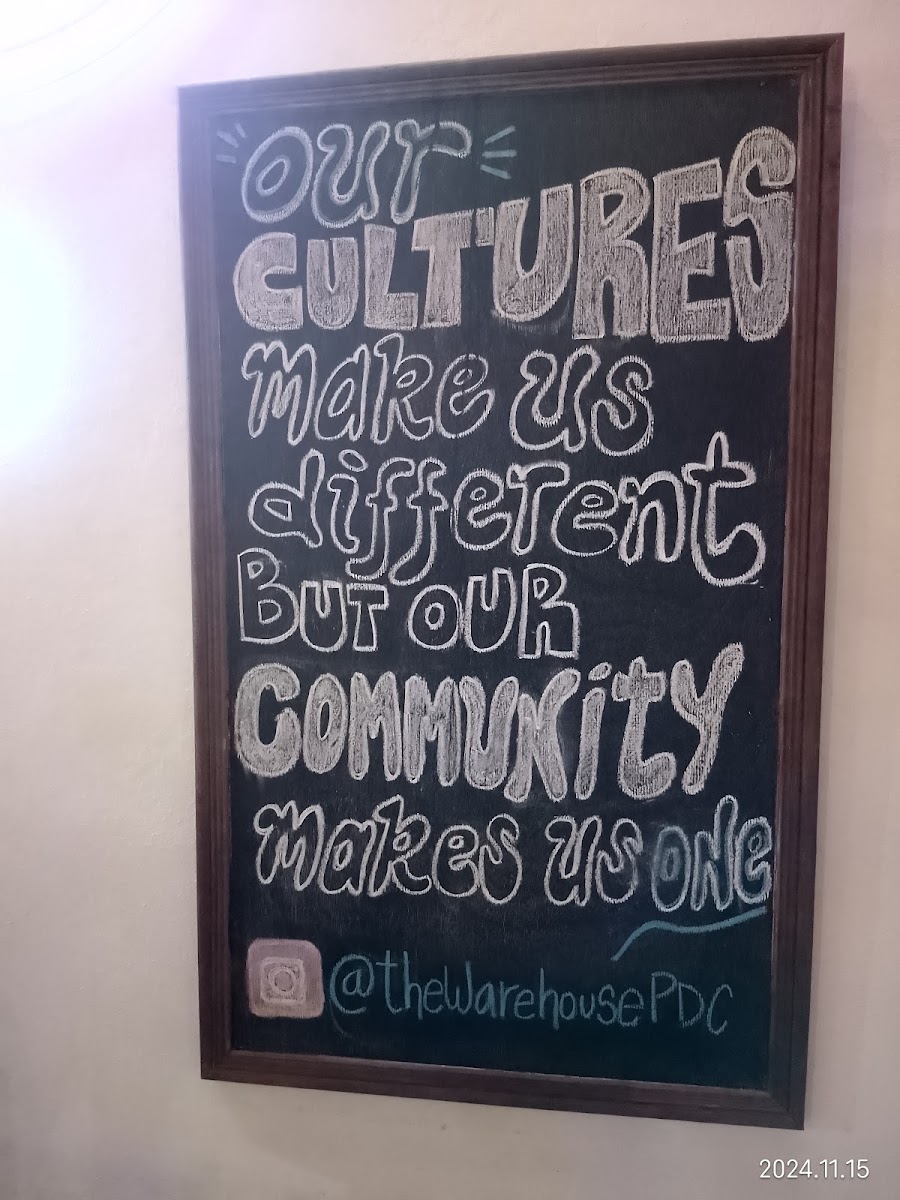 our
CULTURES
make us
different
BUT OUR
COMMUNity
makes us oNe
@thewarehousePDC
2024.11.15